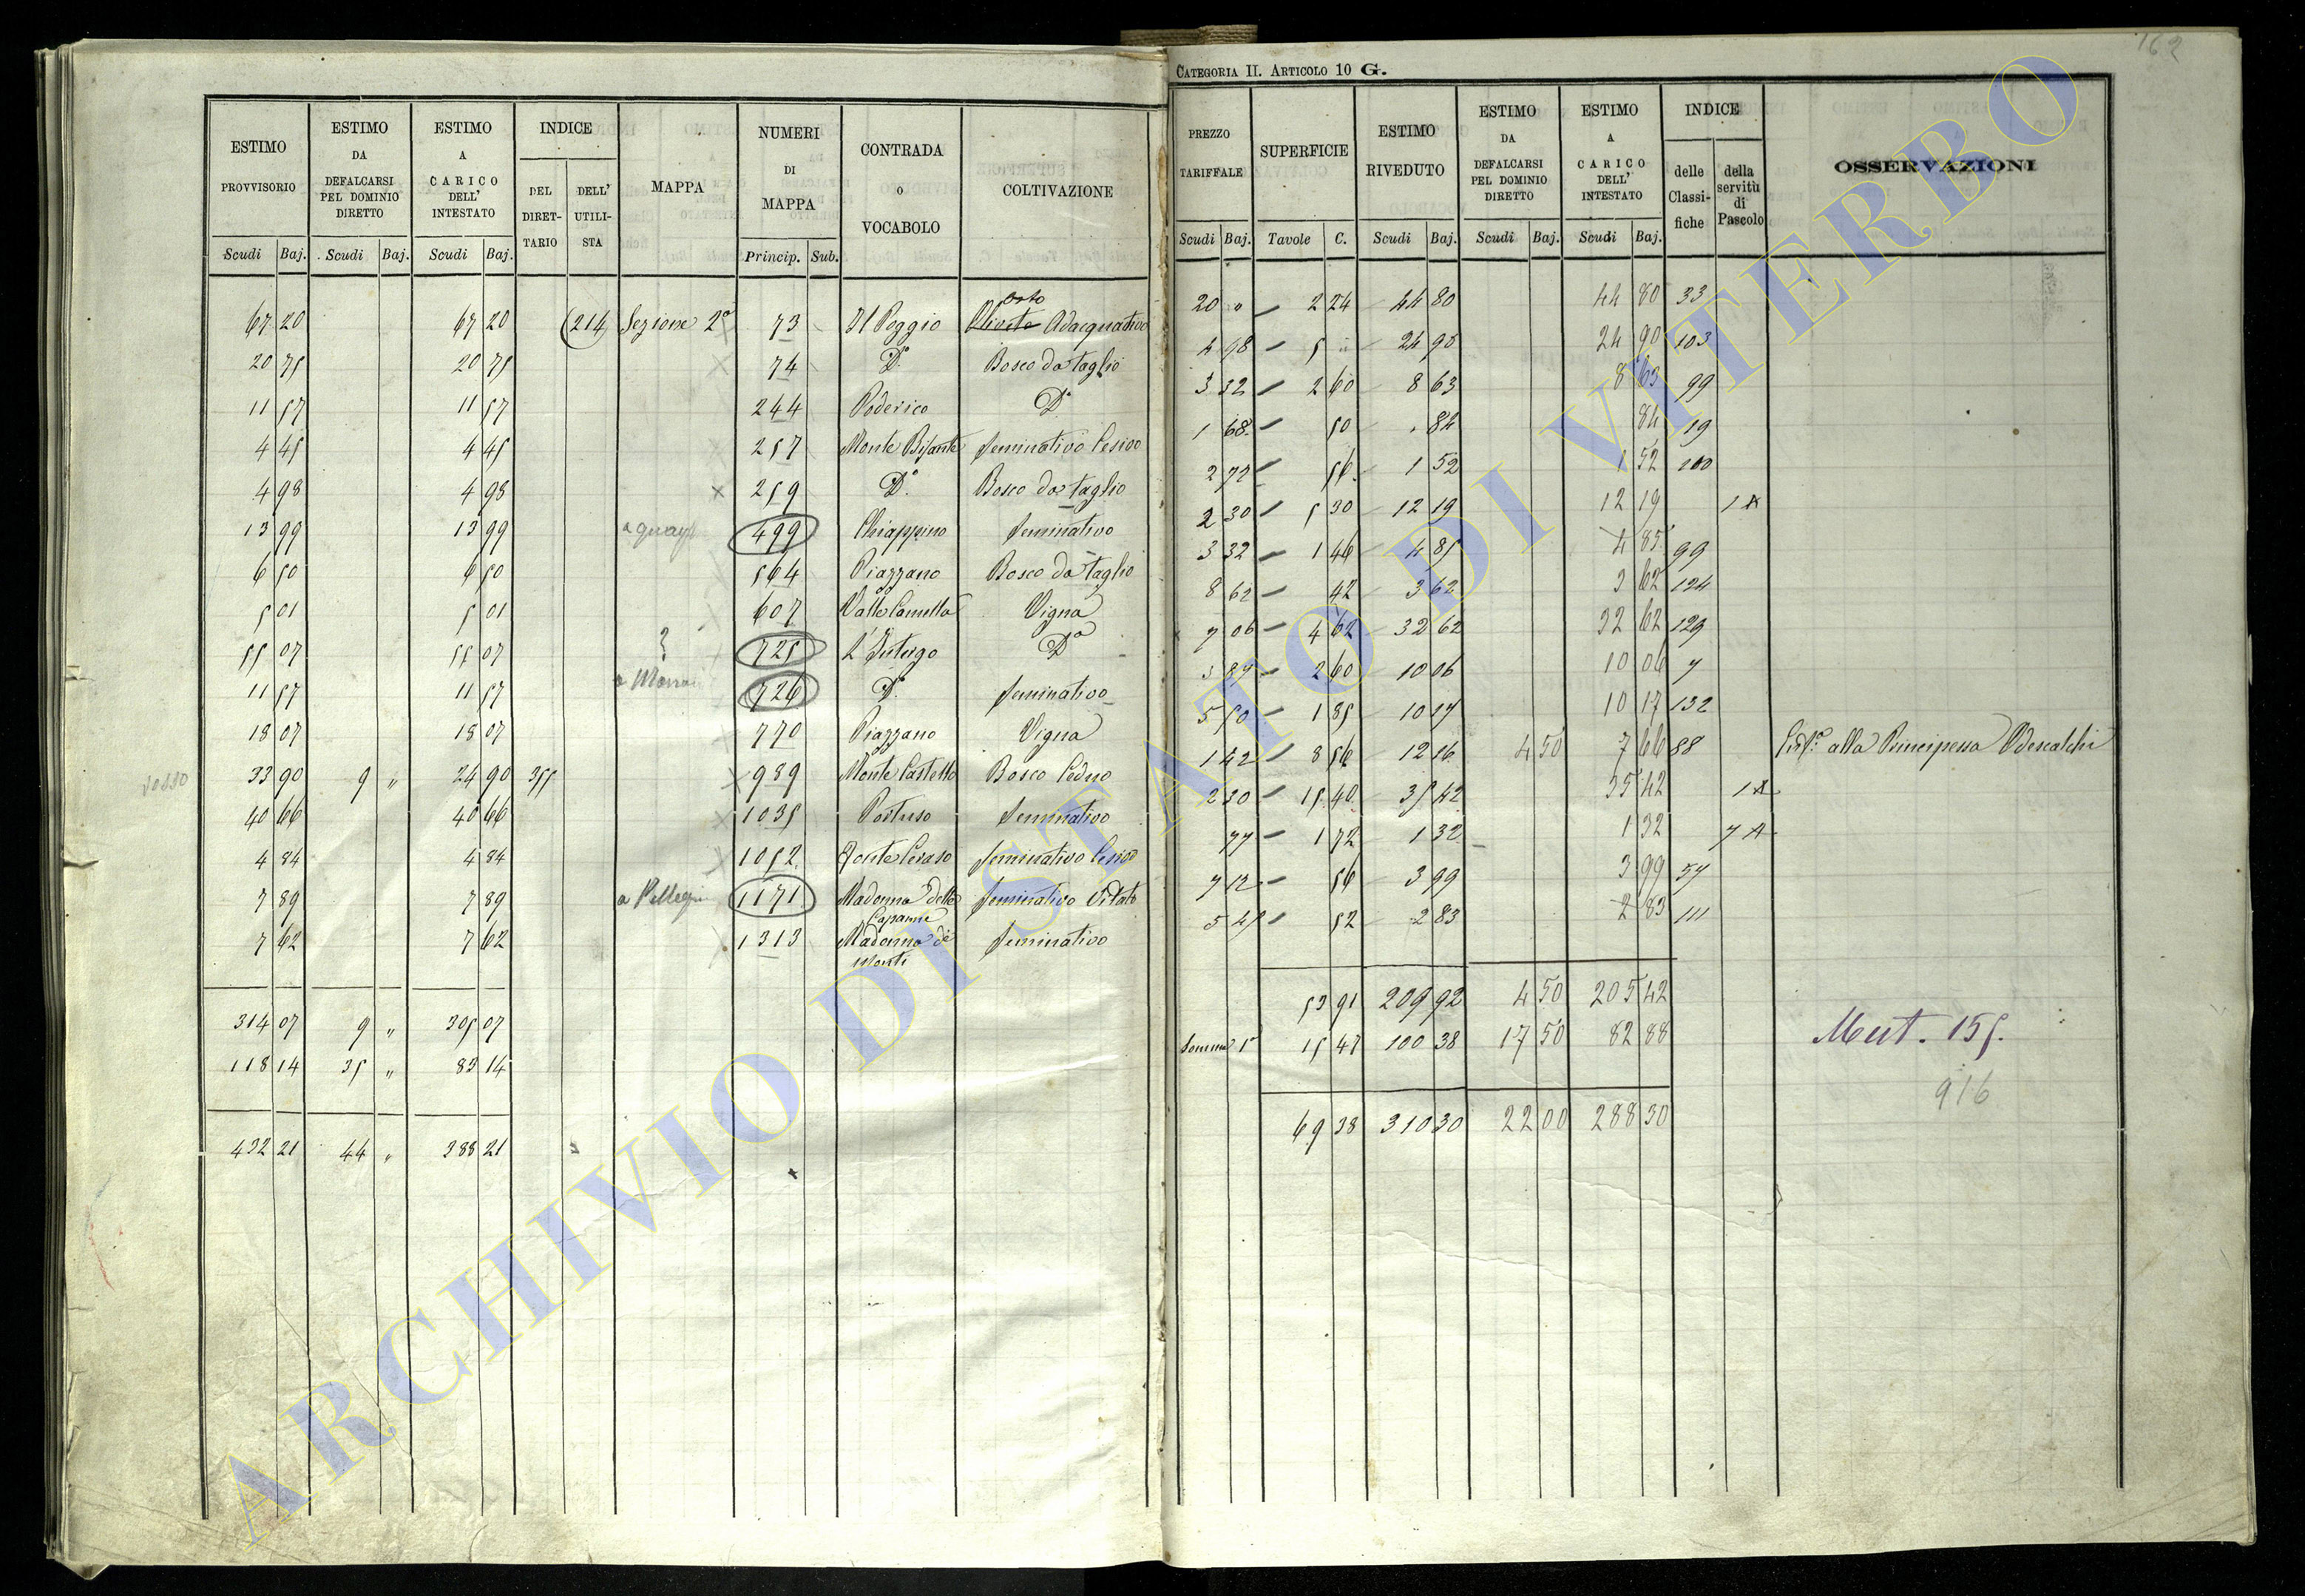 162
CATEGORIA II. ARTICOLO 10 G.
ESTIMO PROVVISORIO Scudi Baj.
ESTIMO DA DEFALCARSI PEL DOMINIO DIRETTO Scudi Baj.
ESTIMO A CARICO DELL' INTESTATO Scudi Baj.
INDICE DEL DIRET-TARIO DELL' UTILI-STA
MAPPA
NUMERI DI MAPPA Princip. Sub.
CONTRADA O VOCABOLO
COLTIVAZIONE
67 20 67 20 (214) Sezione 2a 73 Il Poggio Orto Adacquativo
20 75 20 75 74 Do. Bosco da taglio
11 57 11 57 244 Poderico Do.
4 45 4 45 257 Monte Bisante Seminativo Cesivo
4 98 4 98 259 Do. Bosco da taglio
13 99 13 99 499 Chiappino Seminativo
6 50 6 50 564 Piazzano Bosco da taglio
5 01 5 01 607 Valle Camella Vigna
55 07 55 07 ? 725 Do.
11 57 11 57 726 Do. Seminativo
18 07 18 07 770 Piazzano Vigna
33 90 9 " 24 90 355 989 Monte Castello Bosco Ceduo
40 66 40 66 1035 Seminativo
4 84 4 84 1052 Fonte Ceraso Seminativo Cesivo
7 89 7 89 1171 Madonna delle Capanne Seminativo Vitato
7 62 7 62 1313 Madonna de Monti Seminativo
314 07 9 " 305 07
118 14 35 " 83 14
432 21 44 " 388 21
PREZZO TARIFFALE Scudi Baj.
SUPERFICIE Tavole C.
ESTIMO RIVEDUTO Scudi Baj.
ESTIMO DA DEFALCARSI PEL DOMINIO DIRETTO Scudi Baj.
ESTIMO A CARICO DELL' INTESTATO Scudi Baj.
INDICE delle Classi-fiche della servitù di Pascolo
OSSERVAZIONI
20 " 2 24 44 80 44 80 33
4 98 5 " 24 90 24 90 103
3 32 2 60 8 63 8 63 99
1 68 50 . 84 84 19
2 72 56 1 52 1 52 100
2 30 5 30 12 19 12 19 1 A
3 32 1 46 4 85 4 85 99
8 62 42 3 62 3 62 124
7 06 4 62 32 62 32 62 129
3 87 2 60 10 06 10 06 7
5 50 1 85 10 17 10 17 132
1 42 8 56 12 16 4 50 7 66 88 alla Principessa Odescalchi
2 30 15 40 35 42 35 42 1 A
77 1 72 1 32 1 32 7 A
7 12 56 3 99 3 99 57
5 45 52 2 83 2 83 111
53 91 209 92 4 50 205 42
Somma 15 47 100 38 17 50 82 88
69 38 310 30 22 00 288 30
Mut. 155.
916
ARCHIVIO DI STATO DI VITERBO